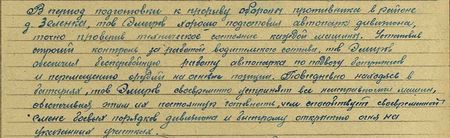 В период подготовки к прорыву обороны противника в районе
д. Зеленка, тов Эмиров хорошо подготовил автопарк дивизиона,
точно проверив техническое состояние каждой машины. Установив
строгий контроль за работой водительского состава, тов Эмиров
обеспечил бесперебойную работу автопарка по подвозу боеприпасов
и перемещению орудий на огневые позиции. Повседневно находясь в
батареях, тов Эмиров своевременно устранял все неисправности машин,
обеспечивая этим их постоянную готовность, чем способствует своевременной
смене боевых порядков дивизиона и быстрому открытию огня на
указанных участках.